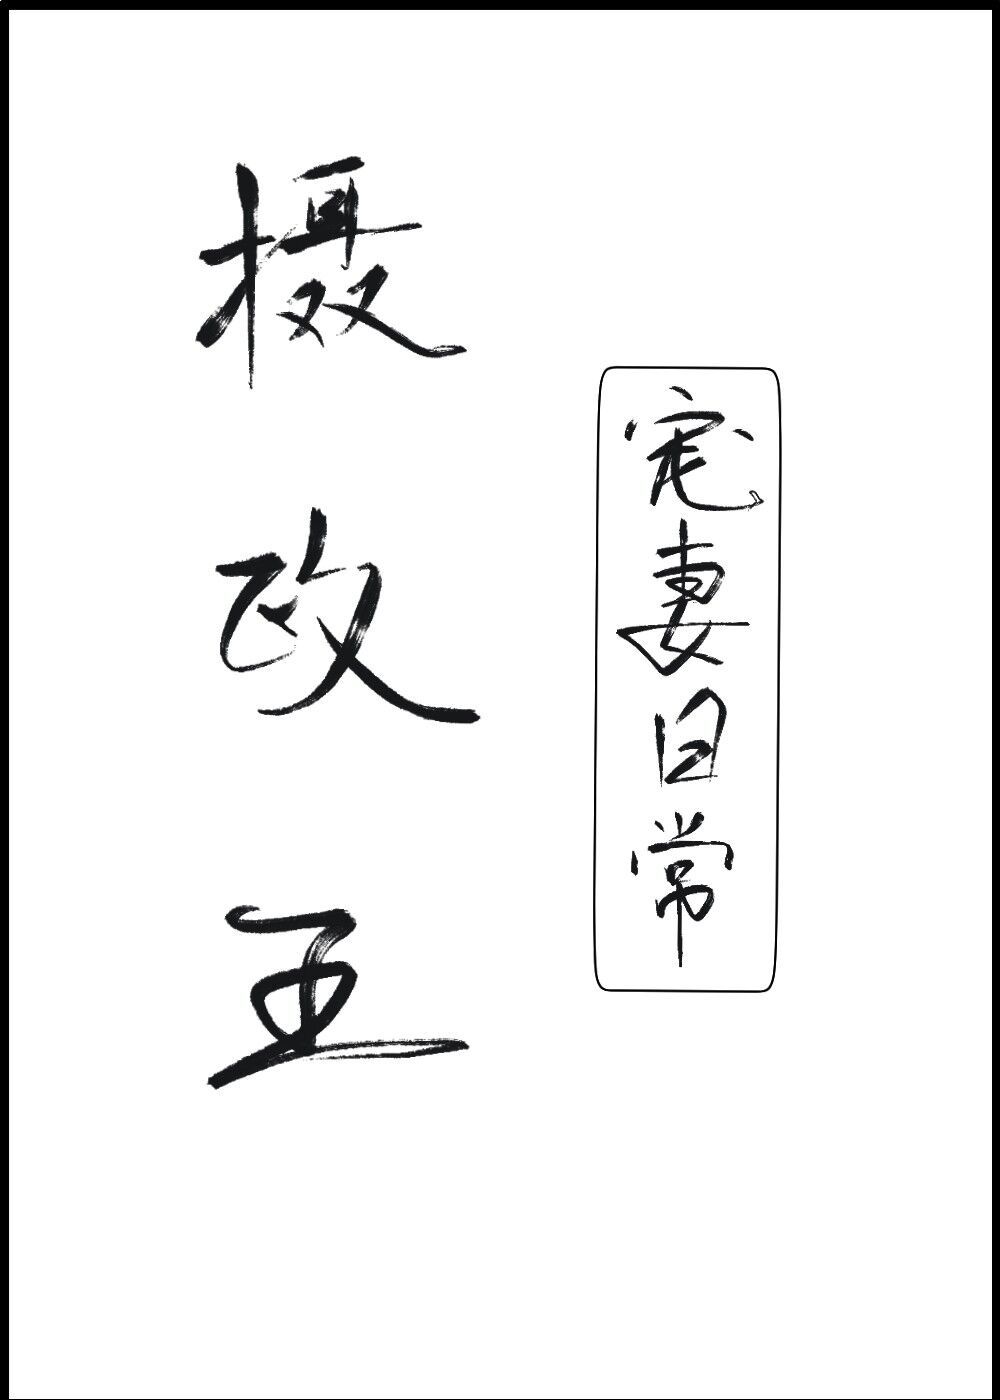 摄政王
宠妻日常